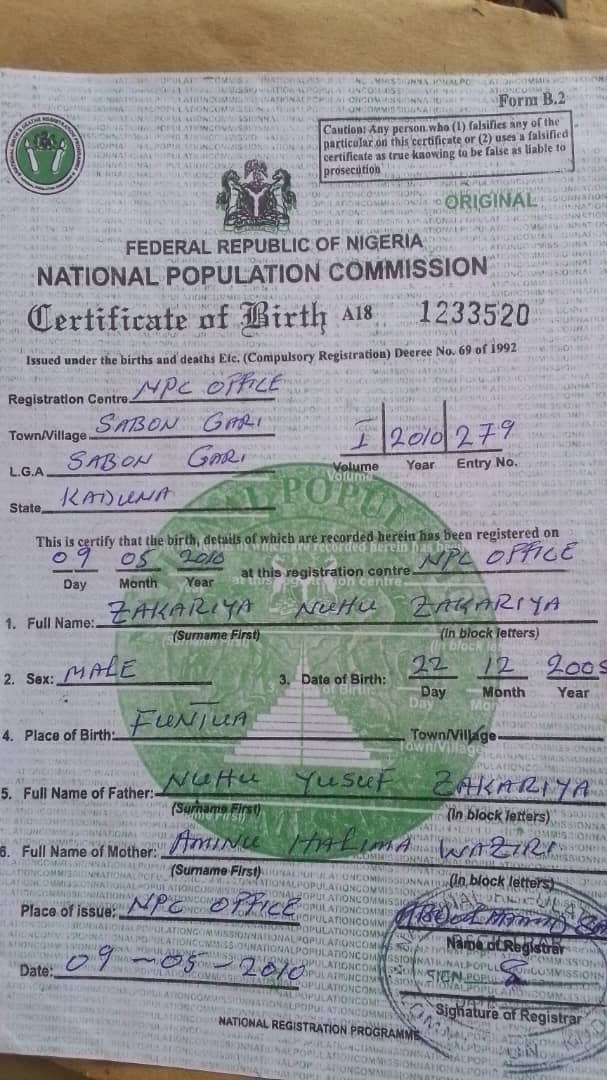 Form B.2
Caution: Any person who (1) falsifies any of the
particular on this certificate or (2) uses a falsified
certificate as true knowing to be false as liable to
prosecution
ORIGINAL
FEDERAL REPUBLIC OF NIGERIA
NATIONAL POPULATION COMMISSION
Certificate of Birth A18 1233520
Issued under the births and deaths Etc. (Compulsory Registration) Decree No. 69 of 1992
Registration Centre NPC OFFICE
Town/Village SABON GARI
I 2010 279
L.G.A SABON GARI
Volume Year Entry No.
State KADUNA
This is certify that the birth, details of which are recorded herein has been registered on
09 05 2010 at this registration centre NPC OFFICE
Day Month Year
1. Full Name: ZAKARIYA NUHU ZAKARIYA
(Surname First) (In block letters)
2. Sex: MALE 3. Date of Birth: 22 12
Day Month Year
4. Place of Birth: FUNTUA Town/Village
5. Full Name of Father: NUHU YUSUF ZAKARIYA
(Surname First) (In block letters)
6. Full Name of Mother: AMINU HALIMA WAZIRI
(Surname First) (In block letters)
Place of issue: NPC OFFICE
Name of Registrar
Date: 09-05-2010
SIGN
Signature of Registrar
NATIONAL REGISTRATION PROGRAMME